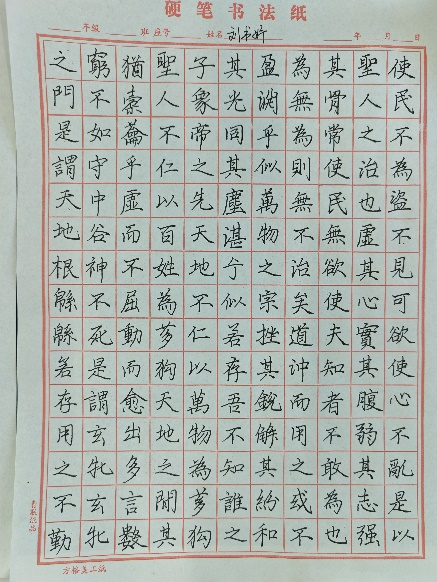 硬笔书法纸
年级 班 座号 姓名 刘 年 月 日
使民不為盜不見可欲使心不亂是以
聖人之治也虛其心實其腹弱其志强
其骨常使民無欲使夫知者不敢為也
為無為則無不治矣道沖而用之或不
盈淵乎似萬物之宗挫其銳解其紛和
其光同其塵湛兮似若存吾不知誰之
子象帝之先天地不仁以萬物為芻狗
聖人不仁以百姓為芻狗天地之間其
猶橐籥乎虛而不屈動而愈出多言數
窮不如守中谷神不死是謂玄牝玄牝
之門是謂天地根緜緜若存用之不勤
方格美工纸